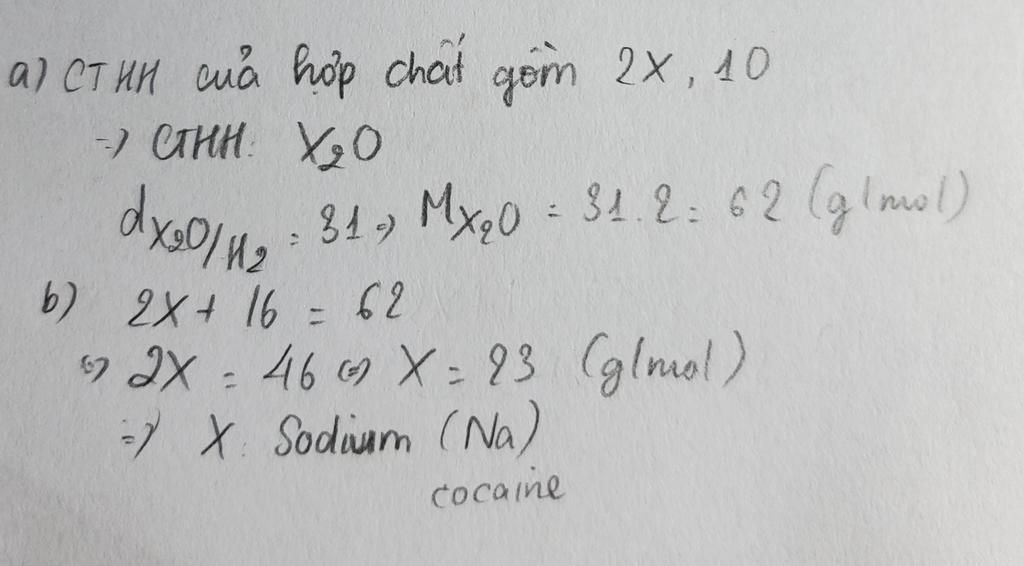 a) CTHH của hợp chất gồm 2X, 1O
=) CTHH: X₂O
d X₂O/H₂ = 31 =) M X₂O = 31.2 = 62 (g/mol)
b) 2X + 16 = 62
(=) 2X = 46 (=) X = 23 (g/mol)
=) X: Sodium (Na)
cocaine